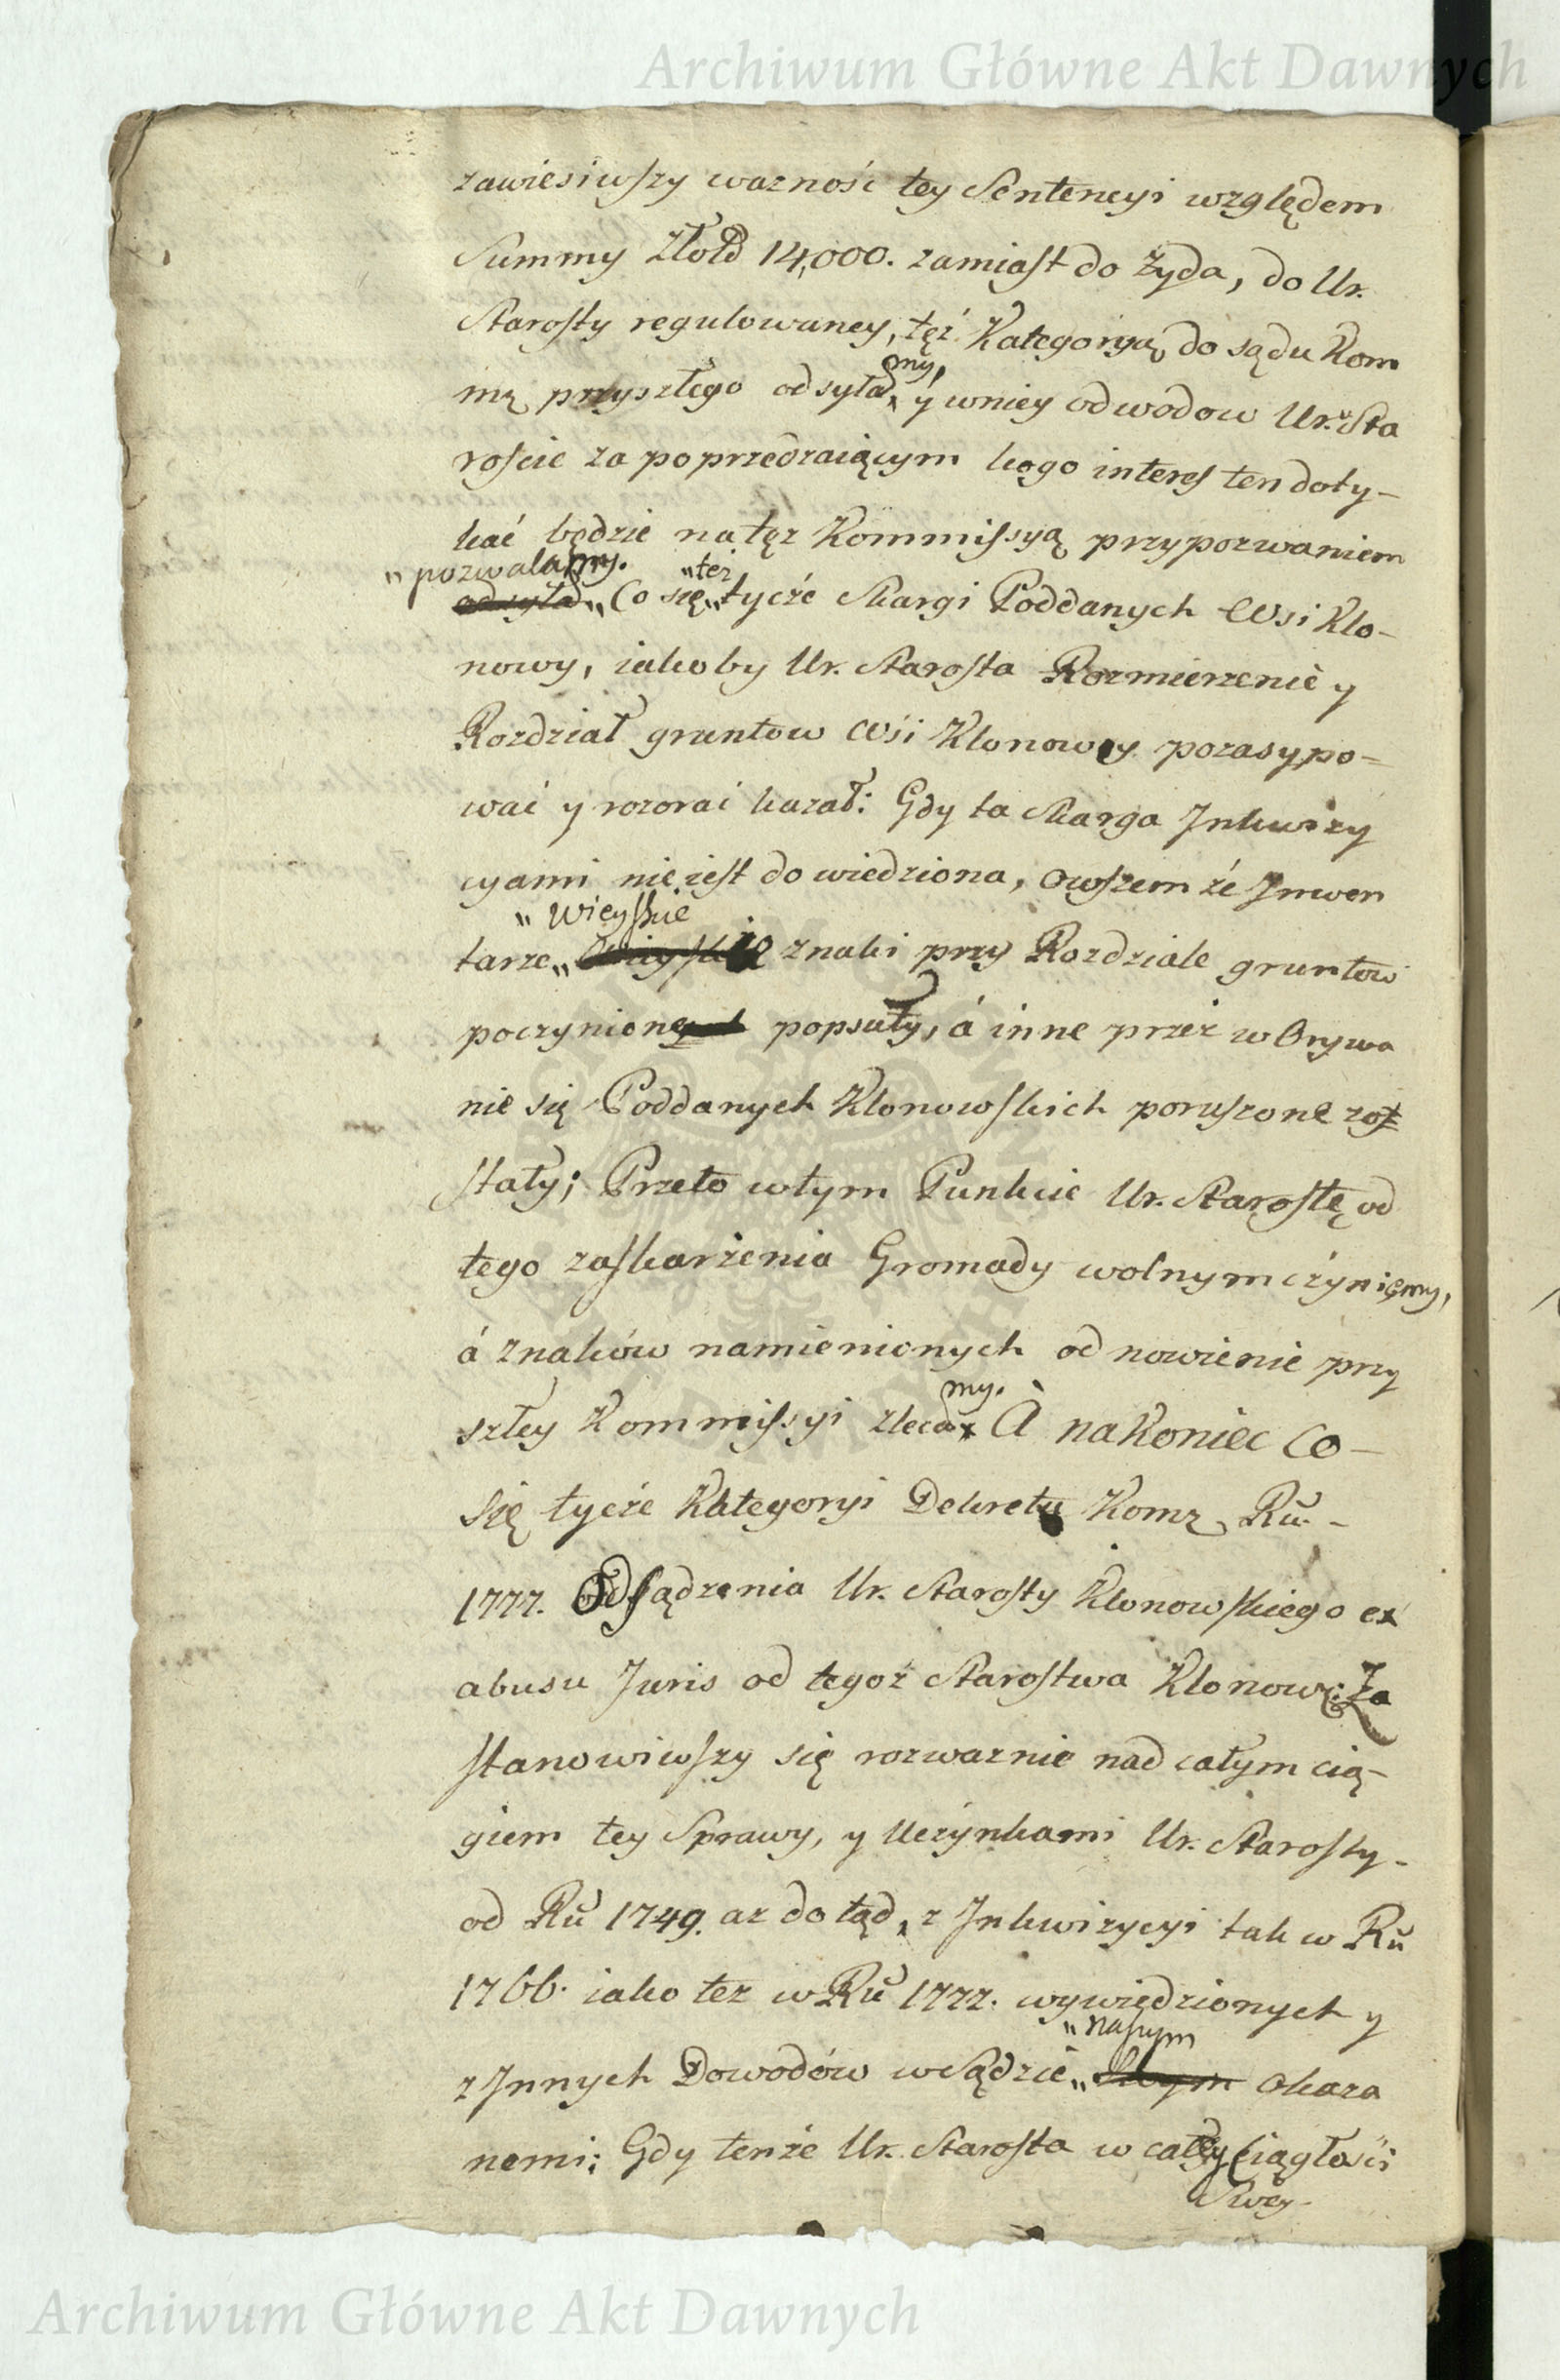 Archiwum Główne Akt Dawnych
zawiesiwszy wazność tey Sentencyi względem
Summy Złołd 14,000. zamiast do Zyda, do Ur.
Starosty regulowaney, tęż Kategoryą do sądu Kom
mą przyszłego odsyłamy, y wniey odwodow Ur. Sta
roscie za poprzedzaiącym kogo interes ten doty-
kać będzie na tęz Kommissyą przypozwaniem
„pozwalamy. „też
odsyła „Co się „tycźe Skargi Poddanych Wsi Klo-
nowy, iakoby Ur. Starosta Rozmierzenie y
Rozdział gruntow Wsi Klonowy pozasypo-
wać y rozorać kazał: Gdy ta Skarga Inkwizy
cyami nie iest dowiedziona, owszem źe Inwen
„Wieyskie
tarze „ znaki przy Rozdziale gruntow
poczynione popsuły, á inne przez wOrywa
nie się Poddanych Klonowskich poruszone zos
stały; Przeto wtym Punkcie Ur. Starostę od
tego zaskarżenia Gromady wolnym czyniemy,
á znaków namienionych odnowienie przy
szłey Kommissyi zlecamy. À nakoniec co-
się tycźe Kategoryi Dekretu Komz Ru. -
1777. Odsądzenia Ur. Starosty Klonowskiego ex
abusu Juris od tegoż Starostwa Klonowgo: Za
stanowiwszy się rozwaznie nad całym cią-
giem tey Sprawy, y Uczynkami Ur. Starosty -
od Ru 1749. az do tąd, z Inkwizycyi tak w Ru
1766. iako tez w Ru 1777. wywiedzionych y
„naszym
z Innych Dowodów wSądzie „ Swym okaza
nemi; Gdy tenże Ur. Starosta w całey ciągłości
Swey-
Archiwum Główne Akt Dawnych